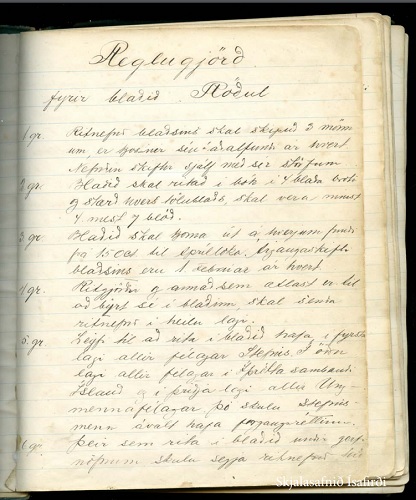 Reglugjörð
fyrir blaðið Röðul
1 gr. Ritnefnd blaðsins skal skipuð 3 mönn
um er kosnir séu á aðalfundi ár hvert
Nefndin skiftir sjálf með sér störfum
2 gr. Blaðið skal ritað í bók í 4 blaða broti
og stærð hvers tölublaðs, skal vera minst
4 mest 7 blöð.
3 gr. Blaðið skal koma út á hverjum fundi
frá 15 Oct. til apríl loka.
blaðsins eru 1 Februar ár hvert.
4 gr. Ritgjörðir og annað sem ætlast er til
að birt sé í blaðinu, skal senda
ritnefnd í heilu lagi.
5 gr. Leyfi til að rita í blaðið hafa í fyrsta
lagi allir félagar Stefnis. Í öðru
lagi allir félagar í Íþróttasambandi
Ísland og í þriðja lagi allir Ung
mennafélagar þó skulu Stefnis
menn ávalt hafa forgangsréttinn.
6 gr. Þeir sem rita í blaðið undir gerfi
nöfnum skulu segja ritnefnd
Skjalasafnið Ísafirði